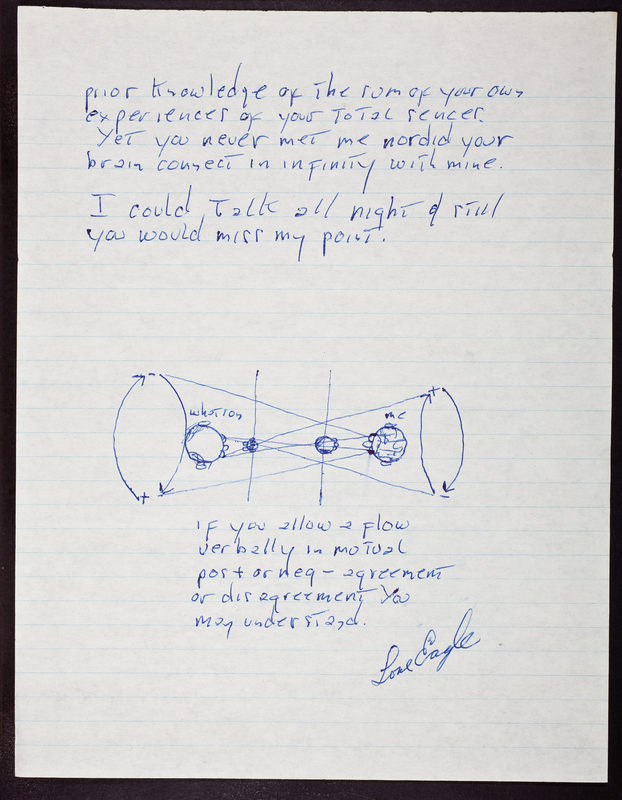 prior Knowledge of the sum of your own
experiences of your total sences.
Yet you never met me nor did your
brain connect in infinity with mine.
I could talk all night & still
you would miss my point.
- +
whorton me
+ -
if you allow a flow
verbally in mutual
pos + or neg - agreement
or disagreement You
may understand.
Lone Eagle